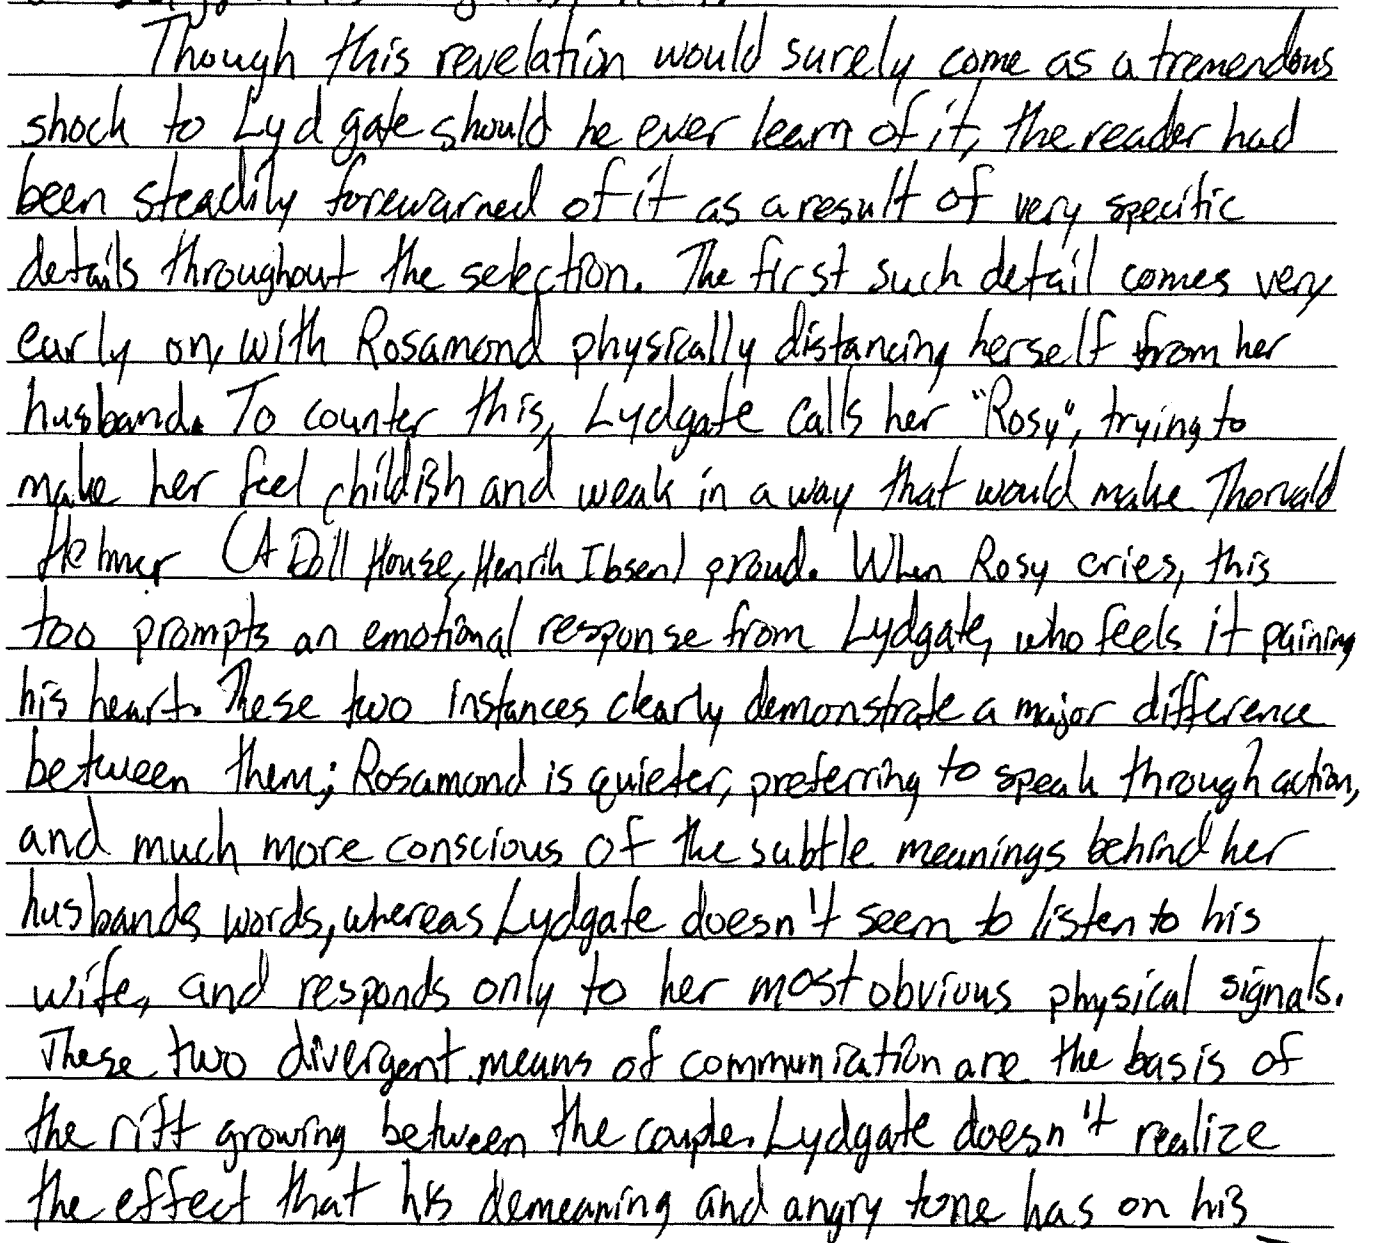 Though this revelation would surely come as a tremendous
shock to Lydgate should he ever learn of it, the reader had
been steadily forewarned of it as a result of very specific
details throughout the selection. The first such detail comes very
early on, with Rosamond physically distancing herself from her
husband. To counter this, Lydgate calls her "Rosy", trying to
make her feel childish and weak in a way that would make Thorvald
Helmer (A Doll House, Henrik Ibsen) proud. When Rosy cries, this
too prompts an emotional response from Lydgate, who feels it paining
his heart. These two instances clearly demonstrate a major difference
between them; Rosamond is quieter, preferring to speak through action,
and much more conscious of the subtle meanings behind her
husbands words, whereas Lydgate doesn't seem to listen to his
wife, and responds only to her most obvious physical signals.
These two divergent means of communication are the basis of
the rift growing between the couple. Lydgate doesn't realize
the effect that his demeaning and angry tone has on his